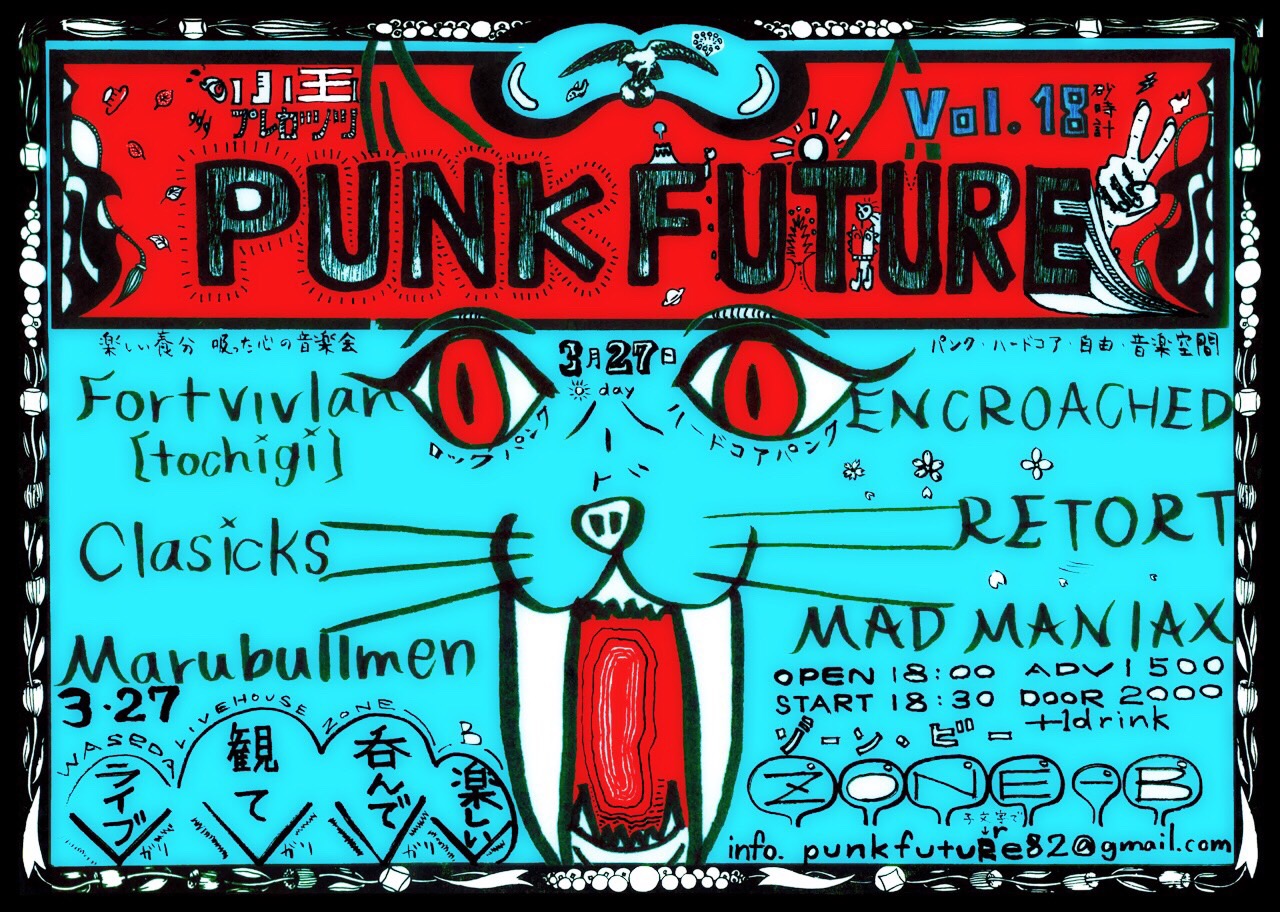 プレゼンツ
Vol. 18
砂時計
PUNK FUTURE
楽しい養分 吸った心の音楽会
3月27日
day
パンク・ハードコア・自由・音楽空間
Fortvivlan
[tochigi]
ロックパンク
ハード
ハードコアパンク
ENCROACHED
Clasicks
RETORT
Marubullmen
MAD MANIAX
3·27
OPEN 18:00 ADV 1500
START 18:30 DOOR 2000
+1drink
WASEDA LIVEHOUSE ZONE B
ライブ
観て
呑んで
楽しい
ガリ
ガリ
ガリ
ゾーン・ビー
ZONE-B
info. punkfutuRe82@gmail.com
r